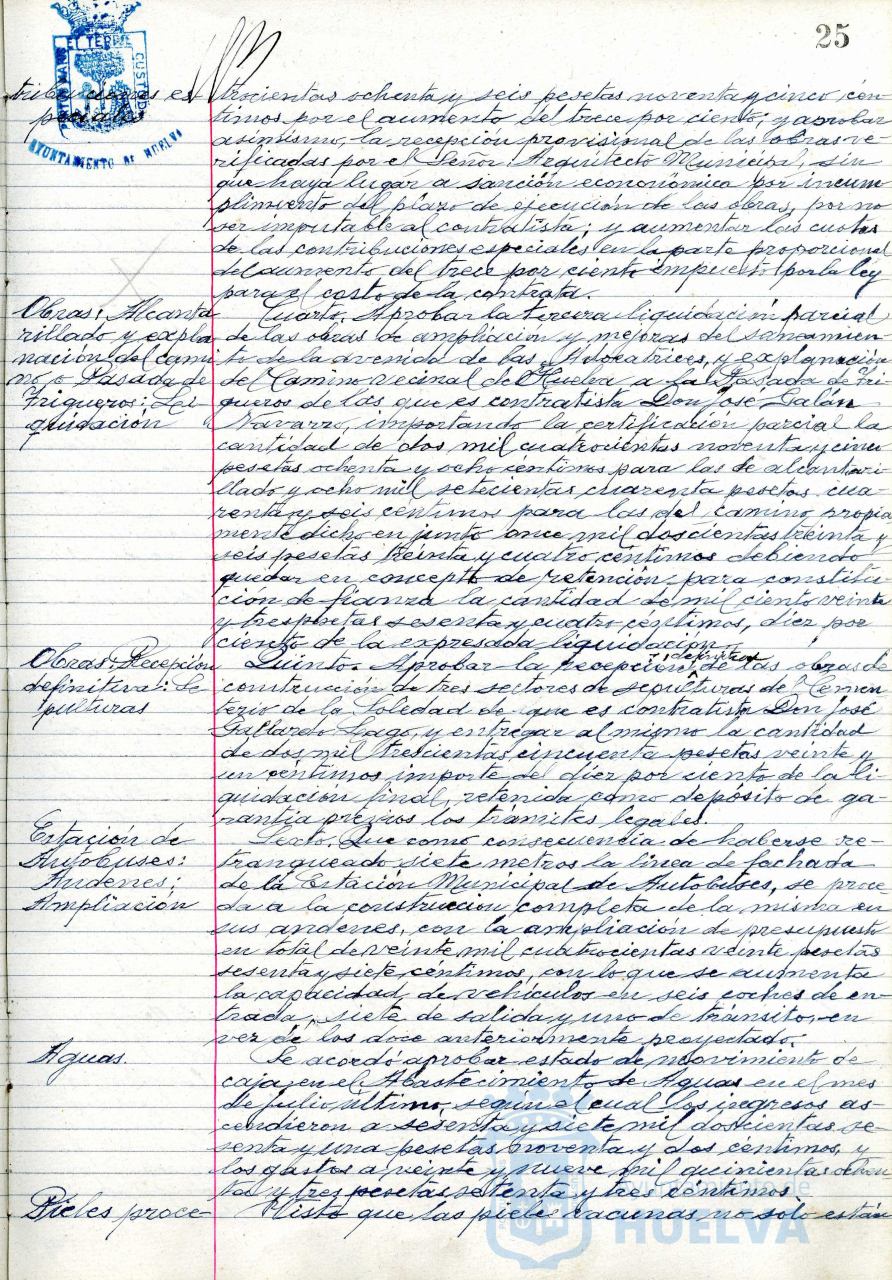 25
PORTUS MARIS ET TERRE CUSTODIA
AYUNTAMIENTO DE HUELVA
tribuciones es-
peciales
trocientas ochenta y seis pesetas noventa y cinco cén-
timos por el aumento del trece por ciento; y aprobar
asimismo, la recepción provisional de las obras ve-
rificadas por el Señor Arquitecto Municipal, sin
que haya lugar a sanción económica por incum
plimiento del plazo de ejecución de las obras, por no
ser imputable al contratista; y aumentar las cuotas
de las contribuciones especiales en la parte proporcional
del aumento del trece por ciento impuesto por la ley
para el costo de la contrata.
Obras: Alcanta
rillado y expla
nación del cami
no o Pasada de
Trigueros: Li-
quidación
Cuarto. Aprobar la tercera liquidación parcial
de las obras de ampliación y mejoras del saneamien-
to de la avenida de las Adoratrices, y explanación
del Camino vecinal de Huelva a la Pasada de Tri-
gueros de las que es contratista Don José Galán
Navarro, importando la certificación parcial la
cantidad de dos mil cuatrocientas noventa y cinco
pesetas ochenta y ocho céntimos para las de alcantari-
llado y ocho mil setecientas cuarenta pesetas cua-
renta y seis céntimos para las del camino propia
mente dicho en junto once mil doscientas treinta y
seis pesetas treinta y cuatro céntimos debiendo
quedar en concepto de retención para constitu-
ción de fianza la cantidad de mil ciento veinte
y tres pesetas sesenta y cuatro céntimos, diez por
ciento de la expresada liquidación.
Obras: Recepción
definitiva: Se
pulturas
Quinto. Aprobar la recepción definitiva de las obras de
construción de tres sectores de sepulturas del Cemen-
terio de la Soledad de que es contratista Don José
Gallardo Lago, y entregar al mismo la cantidad
de dos mil trescientas cincuenta pesetas veinte y
un céntimos importe del diez por ciento de la li-
quidación final, retenida como depósito de ga-
rantía previos los trámites legales.
Estación de
Autobuses:
Andenes;
Ampliación
Sexto. Que como consecuencia de haberse re-
tranqueado siete metros la línea de fachada
de la Estación Municipal de Autobuses, se proce
da a la construcción completa de la misma en
sus andenes, con la ampliación de presupuesto
en total de veinte mil cuatrocientas veinte pesetas
sesenta y siete céntimos, con lo que se aumenta
la capacidad de vehículos en seis coches de en-
trada, siete de salida y uno de tránsito, en
vez de los doce anteriormente proyectado.
Aguas.
Se acordó aprobar estado de movimiento de
caja en el Abastecimiento de Aguas en el mes
de julio último, según el cual los ingresos as-
cendieron a sesenta y siete mil doscientas se-
senta y una pesetas noventa y dos céntimos, y
los gastos a veinte y nueve mil quinientas ochen
ta y tres pesetas setenta y tres céntimos.
Pieles proce-
Visto que las pieles vacunas no sólo están
Ayuntamiento de
HUELVA